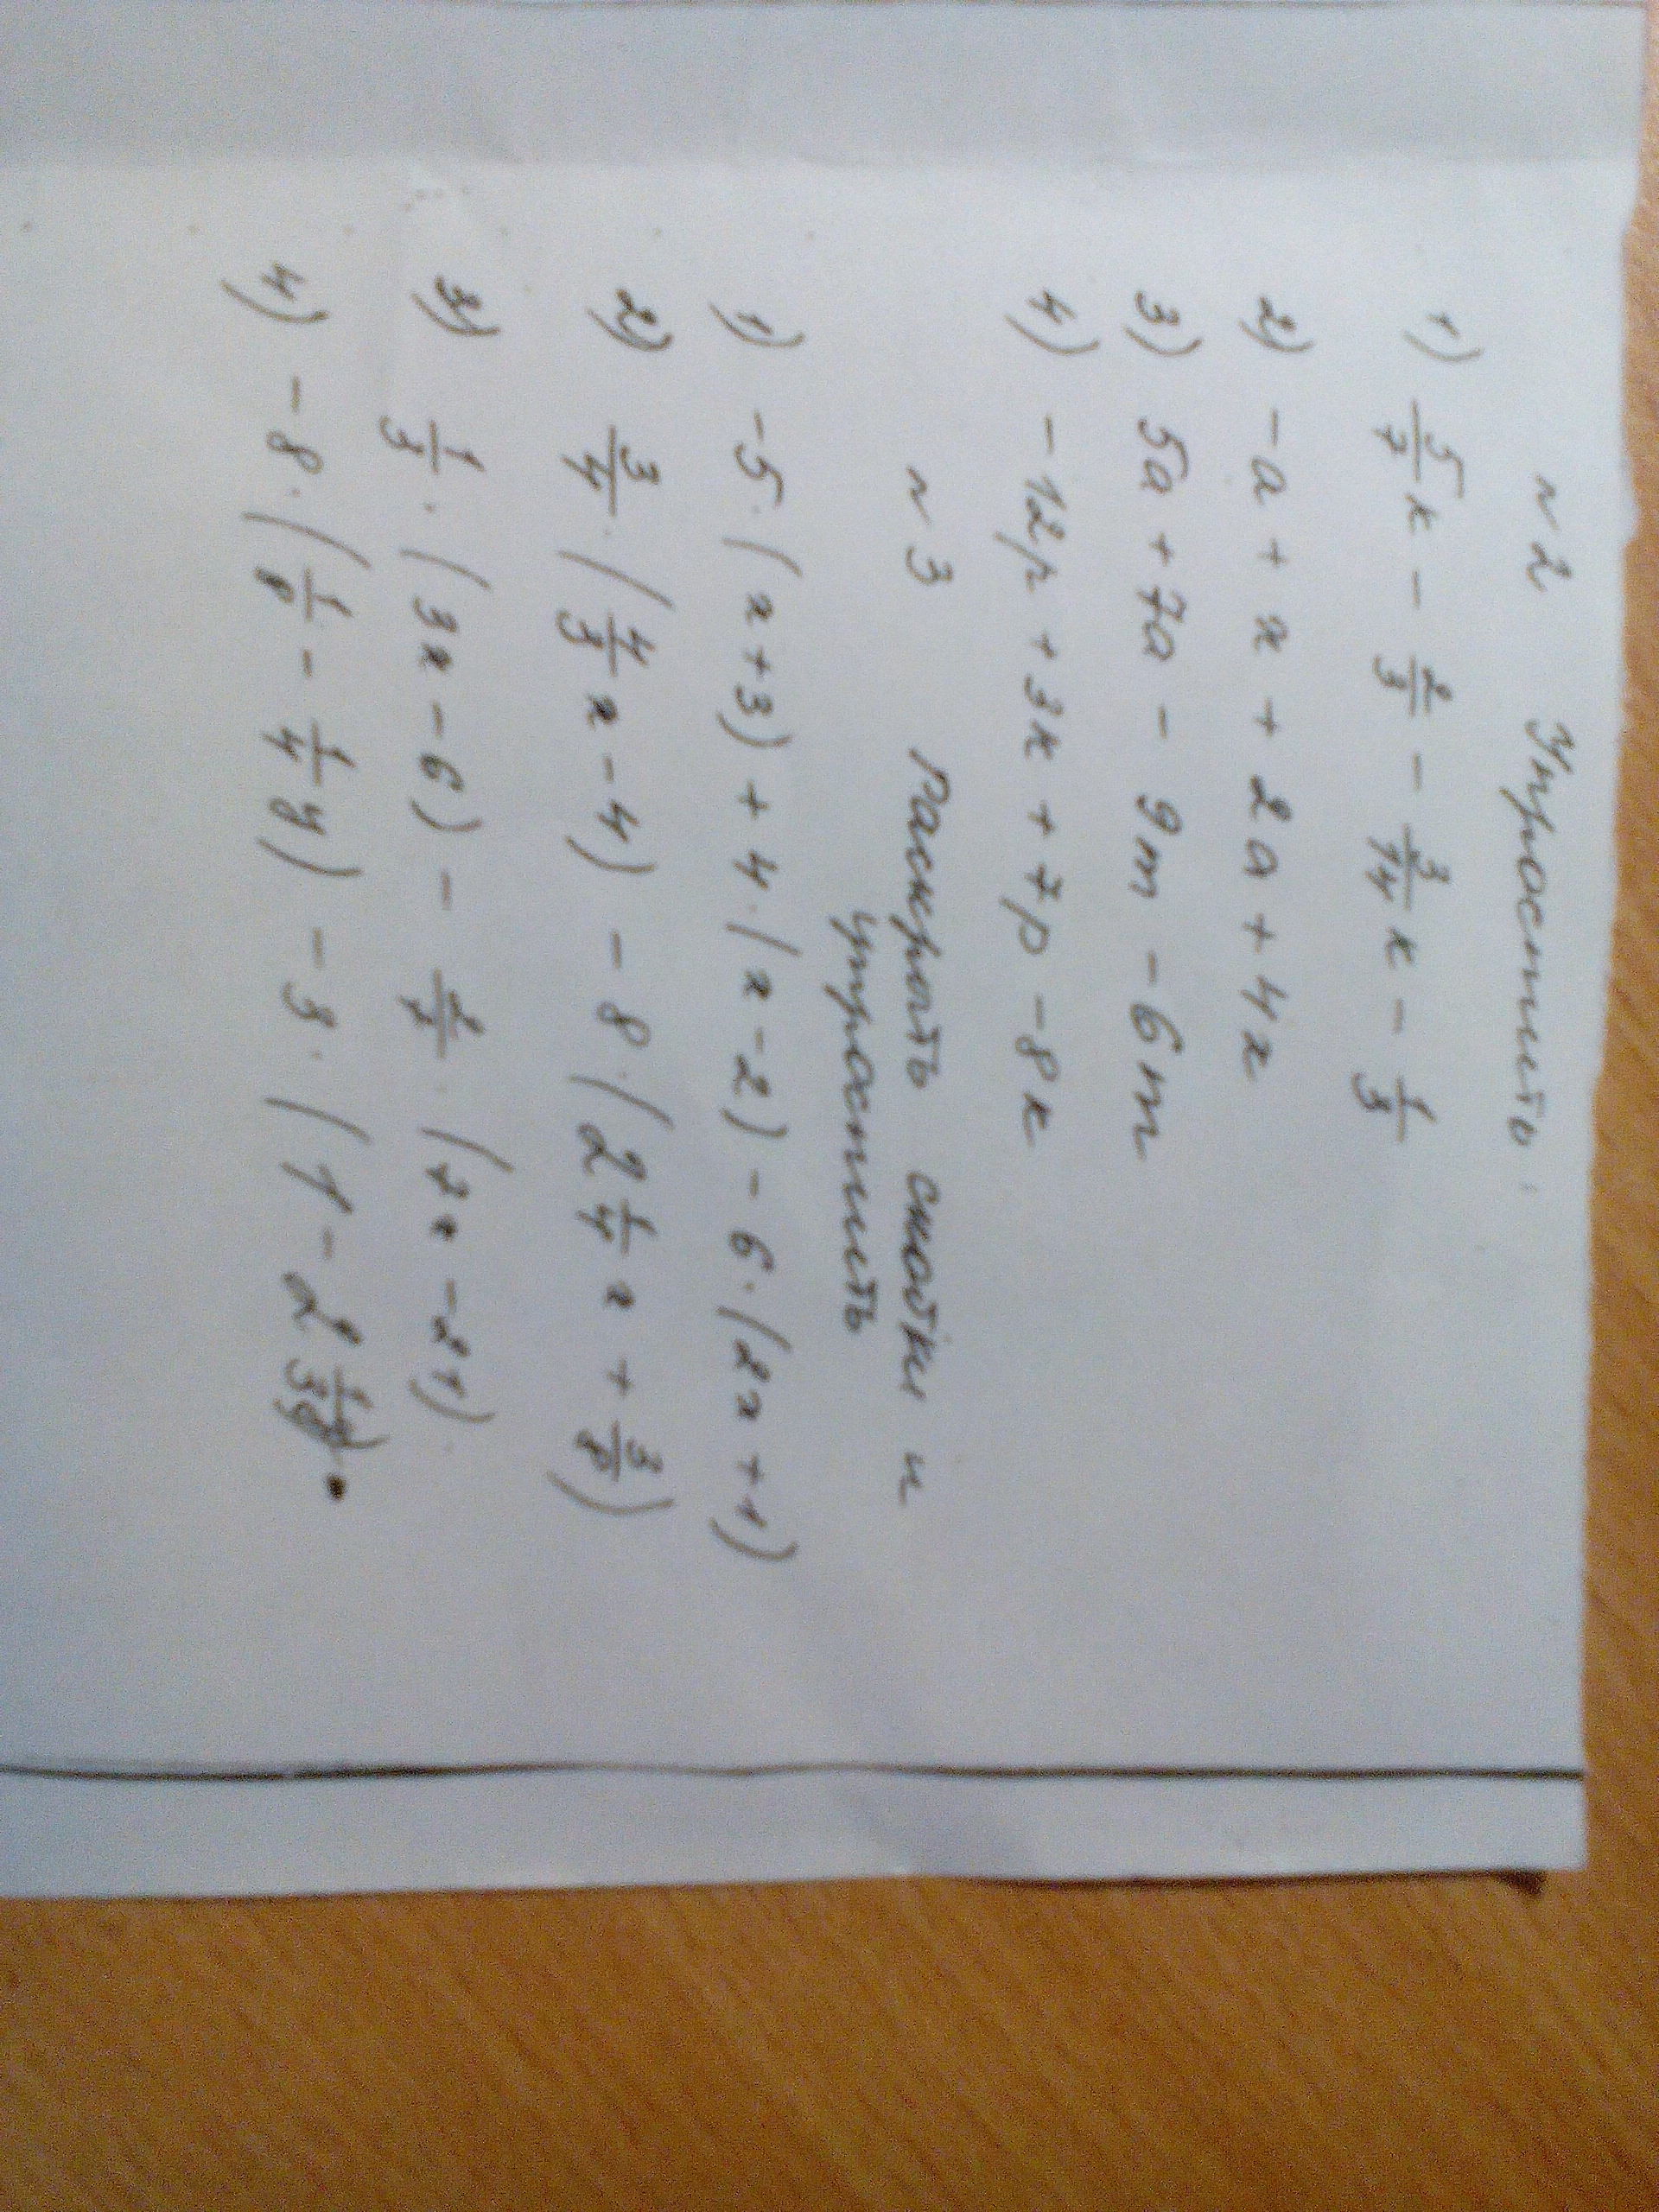 № 2 Упростить
1) 5/7 к - 2/3 - 3/14 к - 1/3
2) -a + x + 2a + 4x
3) 5a + 7a - 9m - 6m
4) -12p + 3к + 7p - 8к
№ 3 Раскрыть скобки и
упростить
1) -5·(x+3) + 4·(x-2) - 6·(2x+1)
2) 3/4·(4/3 x - 4) - 8·(2 1/4 x + 3/8)
3) 1/3·(3x - 6) - 2/7·(7x - 21)
4) -8·(1/8 - 1/4 y) - 3·(1 - 2 1/3 y)